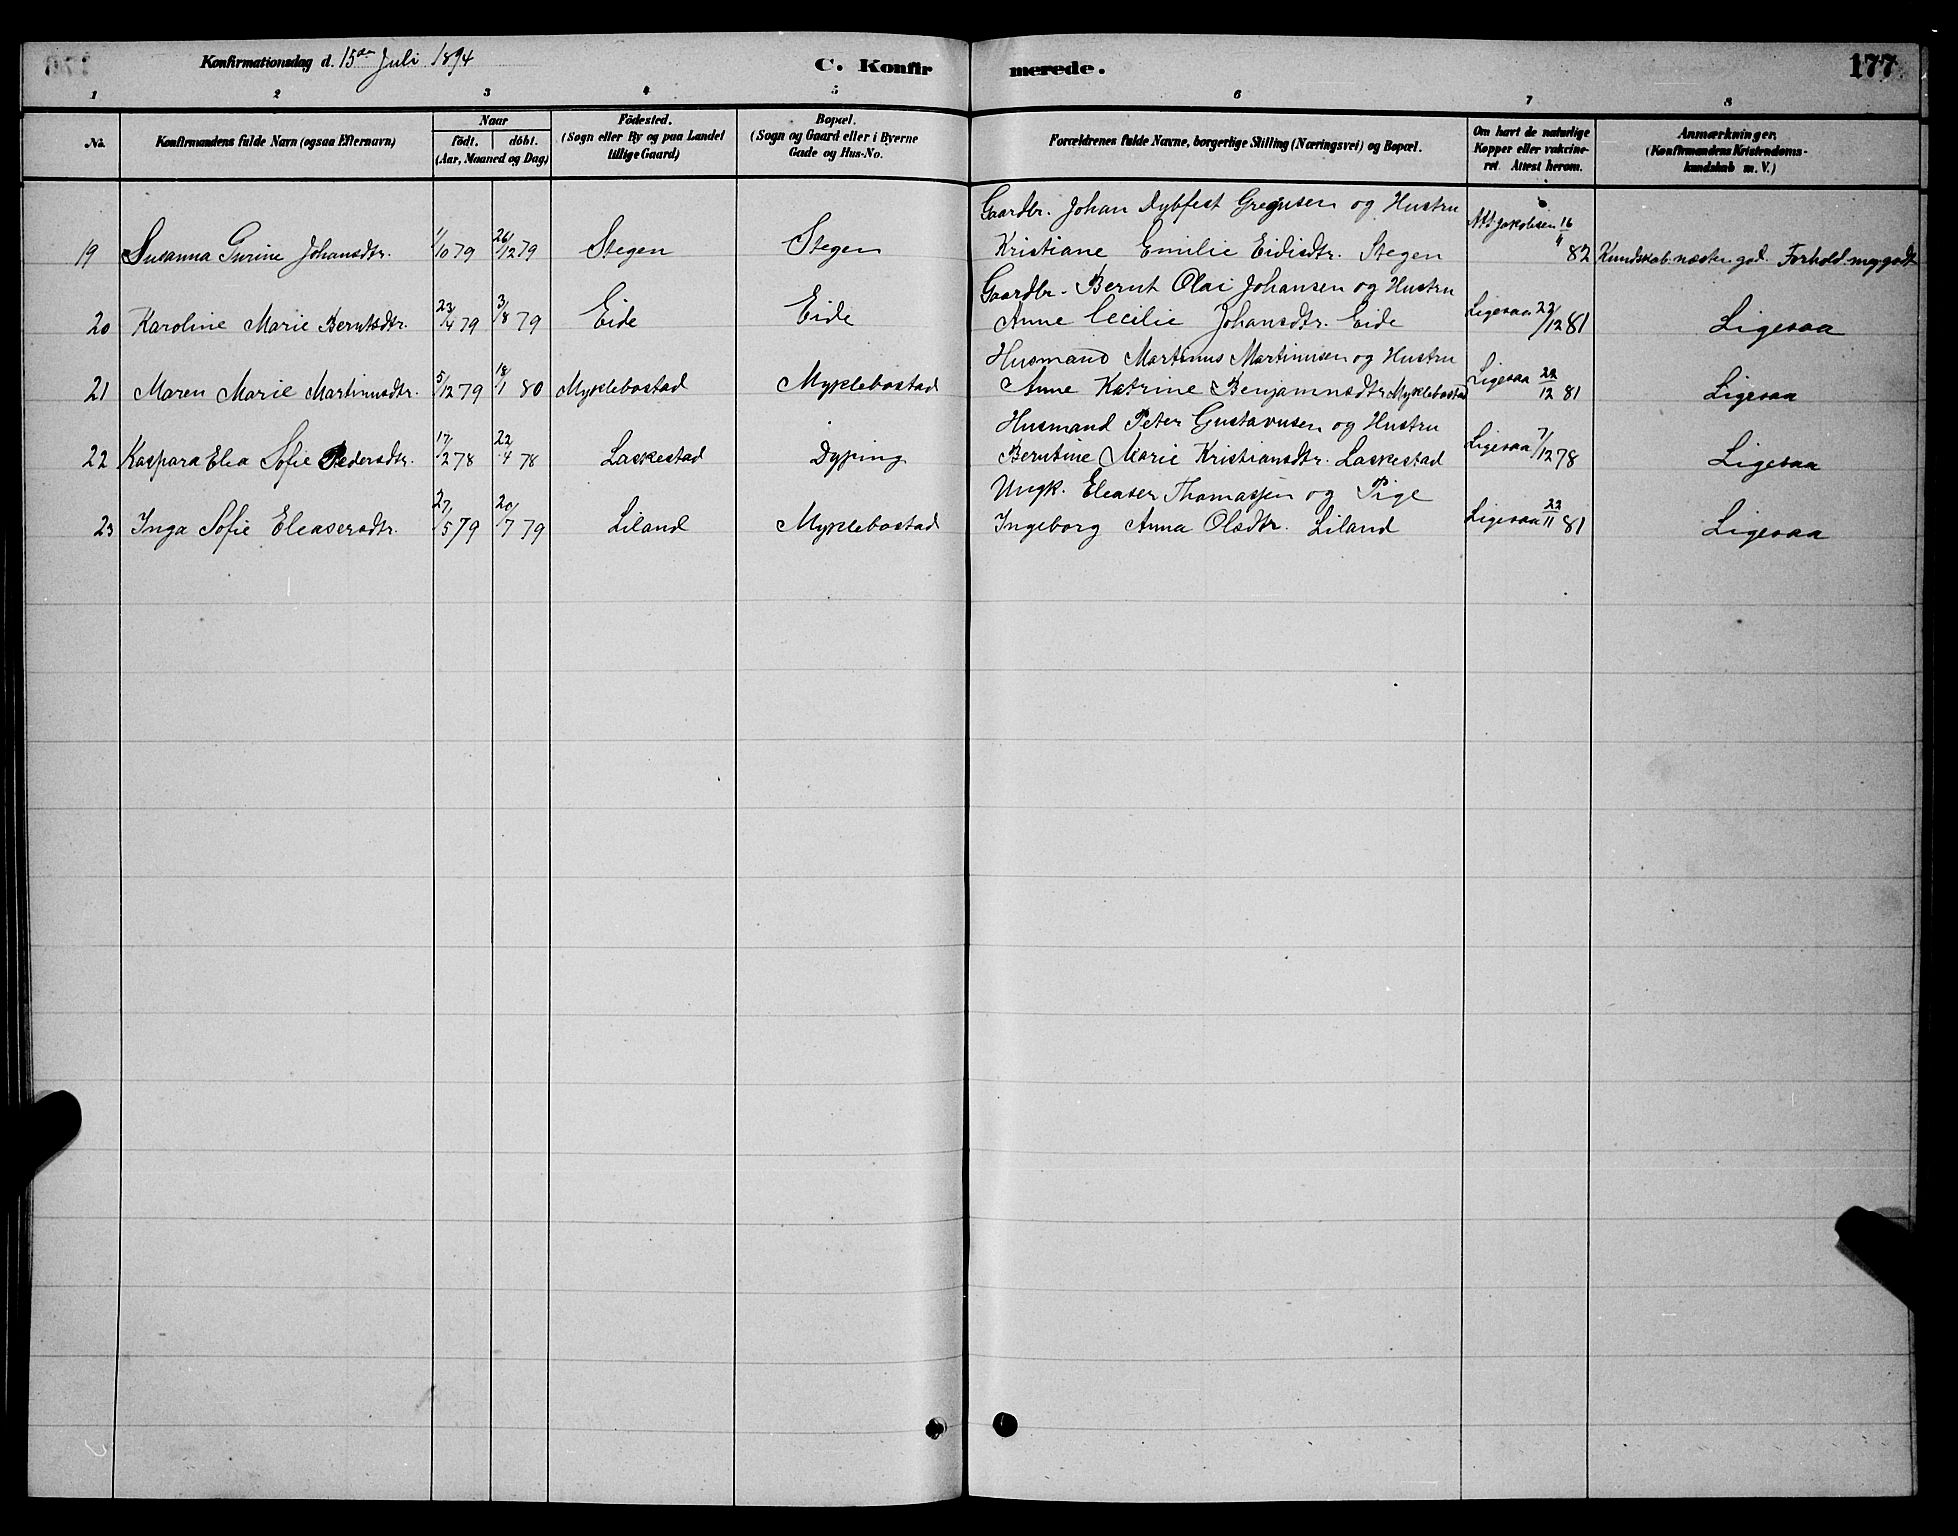 Konfirmationsdag d. 15de Juli 1894 C. Konfirmerede. 177
1 2 3 4 5 6 7 8
No. Konfirmandens fulde Navn (ogsaa Efternavn) Naar födt. döbt. (Aar, Maaned og Dag) Födested. (Sogn eller By og paa Landet tillige Gaard) Bopæl. (Sogn og Gaard eller i Byerne Gade og Hus-No. Forældrenes fulde Navne, borgerlige Stilling (Næringsvei) og Bopæl. Om havt de naturlige Kopper eller vakcineret. Attest herom. Anmærkninger. (Konfirmandens Kristendomskundskab m. V.)
Gaardbr. Johan Dybfest Gregusen og Hustru
19 Susanna Gurine Johansdtr. 1/10 79 26/12 79 Stegen Stegen Kristiane Emilie Eidisdtr. Stegen Att. Jakobsen 16/11 82 Kundskab næsten god. Forhold meg. godt
Gaardbr. Bernt Olai Johansen og Hustru
20 Karoline Marie Berntsdtr. 23/4 79 3/8 79 Eide Eide Anne Cecilie Johansdtr. Eide Ligesaa 22/12 81 Ligesaa
Husmand Martinus Martinusen og Hustru
21 Maren Marie Martinusdtr. 5/12 79 18/1 80 Myklebostad Myklebostad Anne Katrine Benjaminsdtr Myklebostad Ligesaa 22/12 81 Ligesaa
Husmand Peter Gustavusen og Hustru
22 Kaspara Elea Sofie Pedersdtr. 17/2 78 22/4 78 Laskestad Dyping Berntine Marie Kristiansdtr. Laskestad Ligesaa 7/12 78 Ligesaa
Ungk. Eleaser Thomassen og Pige
23 Inga Sofie Eleasersdtr. 27/5 79 20/7 79 Liland Myklebostad Ingeborg Anna Olsdtr. Liland Ligesaa 22/11 81 Ligesaa